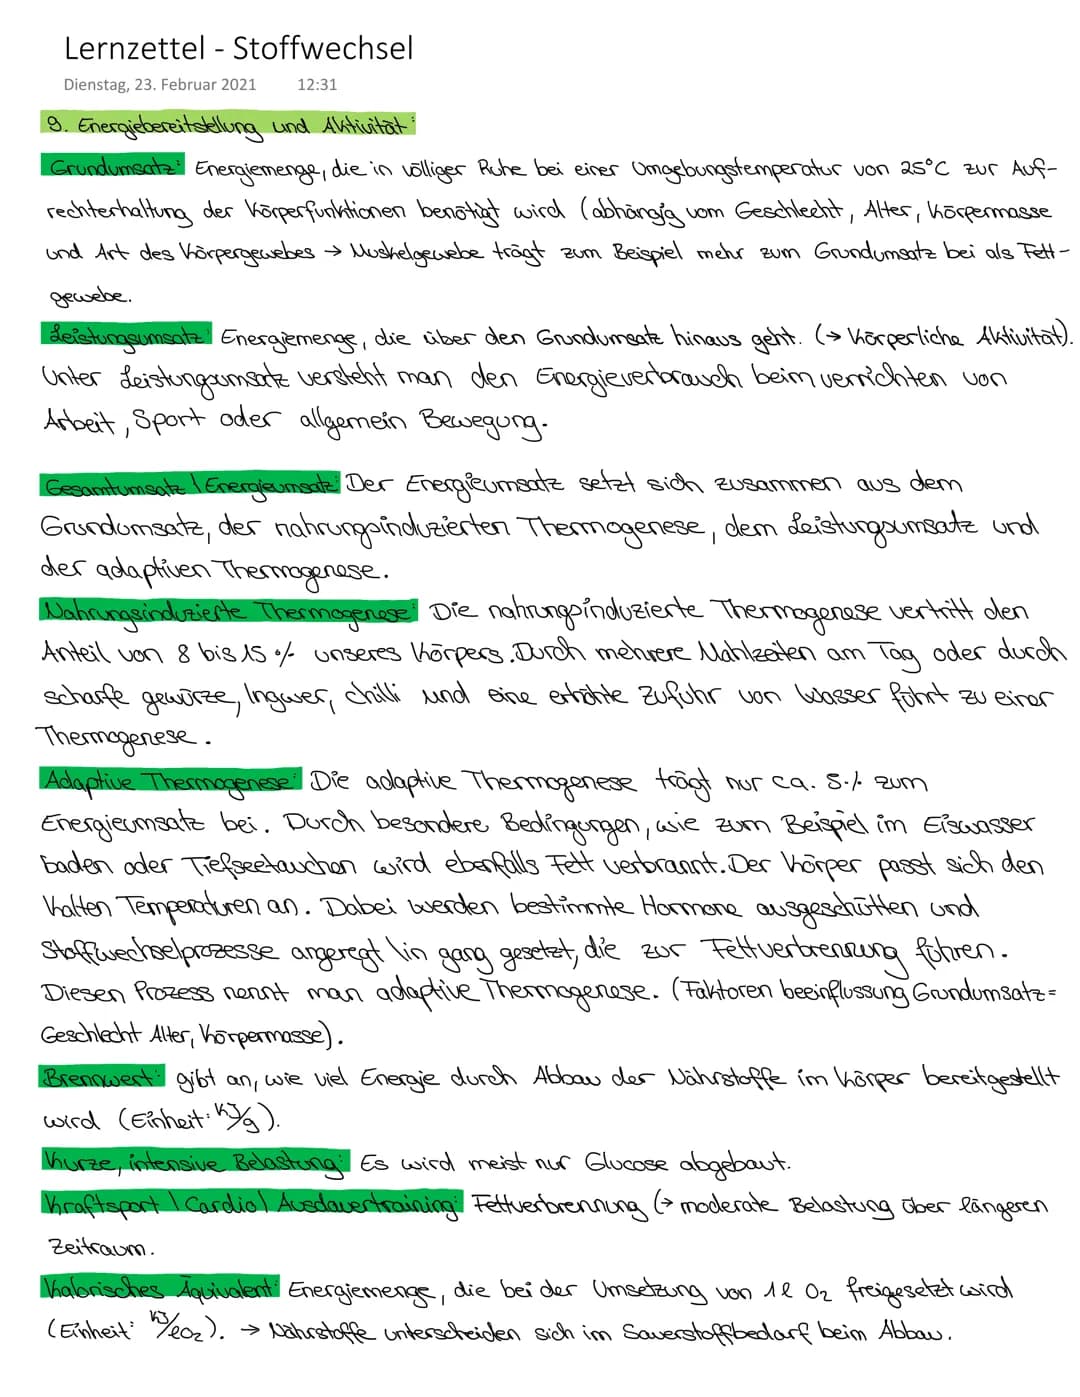 Lernzettel - Stoffwechsel
Dienstag, 23. Februar 2021 12:31
9. Energiebereitstellung und Aktivität:
Grundumsatz: Energiemenge, die in völliger Ruhe bei einer Umgebungstemperatur von 25°C zur Auf-
rechterhaltung der Körperfunktionen benötigt wird (abhängig vom Geschlecht, Alter, Körpermasse
und Art des Körpergewebes → Muskelgewebe trägt zum Beispiel mehr zum Grundumsatz bei als Fett-
gewebe.
Leistungsumsatz: Energiemenge, die über den Grundumsatz hinaus geht. (→ Körperliche Aktivität).
Unter Leistungsumsatz versteht man den Energieverbrauch beim verrichten von
Arbeit, Sport oder allgemein Bewegung.
Gesamtumsatz | Energieumsatz: Der Energieumsatz setzt sich zusammen aus dem
Grundumsatz, der nahrungsinduzierten Thermogenese, dem Leistungsumsatz und
der adaptiven Thermogenese.
Nahrungsinduzierte Thermogenese: Die nahrungsinduzierte Thermogenese vertritt den
Anteil von 8 bis 15 % unseres Körpers. Durch mehrere Mahlzeiten am Tag oder durch
scharfe gewürze, Ingwer, chilli und eine erhöhte Zufuhr von Wasser führt zu einer
Thermogenese.
Adaptive Thermogenese: Die adaptive Thermogenese trägt nur ca. 5 % zum
Energieumsatz bei. Durch besondere Bedingungen, wie zum Beispiel im Eiswasser
baden oder Tiefseetauchen wird ebenfalls Fett verbrannt. Der Körper passt sich den
kalten Temperaturen an. Dabei werden bestimmte Hormone ausgeschütten und
Stoffwechselprozesse angeregt | in gang gesetzt, die zur Fettverbrennung führen.
Diesen Prozess nennt man adaptive Thermogenese. (Faktoren beeinflussung Grundumsatz =
Geschlecht Alter, Körpermasse).
Brennwert: gibt an, wie viel Energie durch Abbau der Nährstoffe im Körper bereitgestellt
wird (Einheit: KJ/g).
Kurze, intensive Belastung: Es wird meist nur Glucose abgebaut.
Kraftsport | Cardio | Ausdauertraining: Fettverbrennung (→ moderate Belastung über längeren
Zeitraum.
Kalorisches Äquivalent: Energiemenge, die bei der Umsetzung von 1l O₂ freigesetzt wird
(Einheit: KJ/lO₂). → Nährstoffe unterscheiden sich im Sauerstoffbedarf beim Abbau.